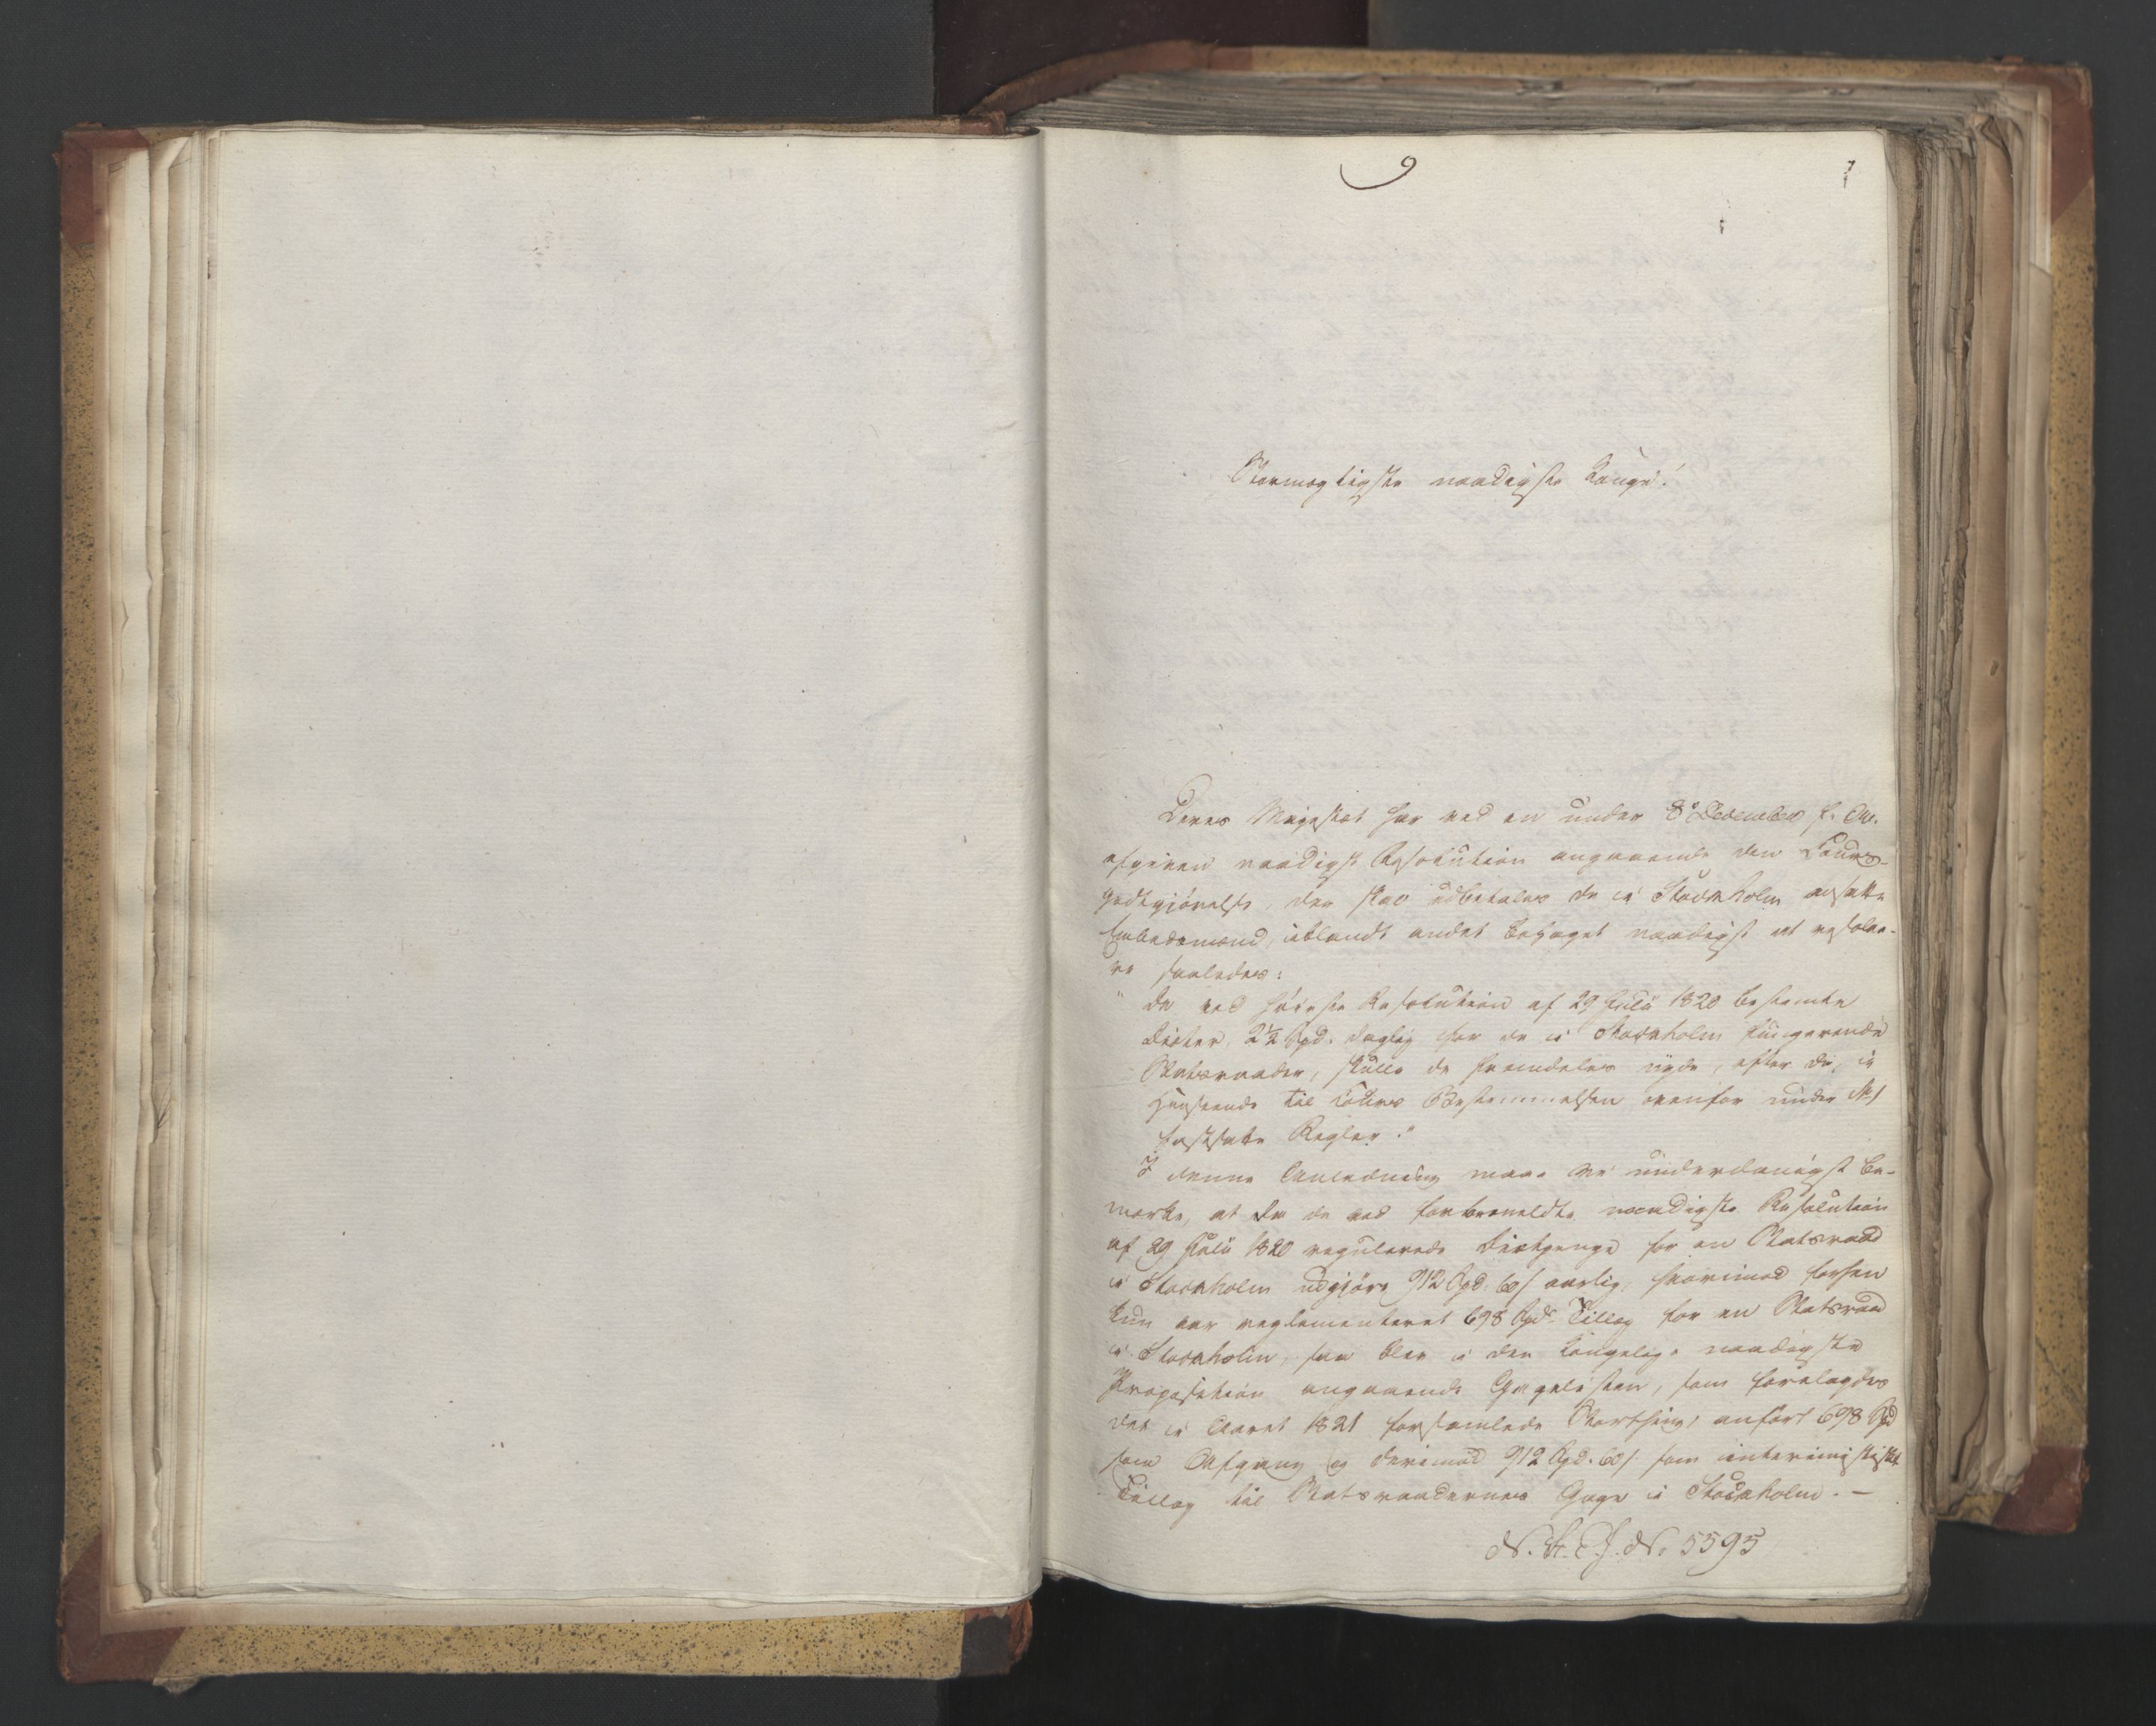 9
7
Stormægtigste naadigste Konge!
Deres Majestæt har ved en under 8de December f. A.
afgiven naadigst Resolution angaaende den Cours-
godtgjørelse, der skal udbetales de i Stockholm ansatte
Embedsmænd, iblandt andet behaget naadigst at resolve-
re saaledes:
" De ved høieste Resolution af 29 Julii 1820 bestemte
Diæter, 2½ Spd. daglig for de i Stockholm fungerende
Statsraader, skulle de fremdeles nyde, efter de, i
Henseende til Cours Bestemmelsen ovenfor under No 1
fastsatte Regler."
I denne Anledning maae vi underdanigst be-
mærke, at da de ved forbemeldte naadigste Resolution
af 29 Julii 1820 regulerede Diætpenge for en Statsraad
i Stockholm udgjøre 912 Spd. 60 s aarlig, hvorimod forhen
kun var reglementeret 698 Spd. Tillæg for en Statsraad
i Stockholm, saa blev i den Kongelige naadigste
Proposition angaaende Gagelisten, som forelagdes
det i Aaret 1821 forsamlede Storthing, anført 698 Spd
som Afgang og derimod 912 Spd. 60 s. som interimistisk
Tillæg til Statsraadernes Gage i Stockholm. —
No 5595